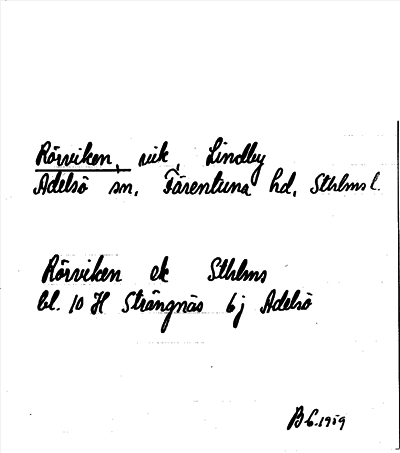 Rörviken, vik, Lindby
Adelsö sn. Färentuna hd. Sthlms l.
Rörviken ek Sthlms
bl. 10 H Strängnäs 6j Adelsö
B G. 1959